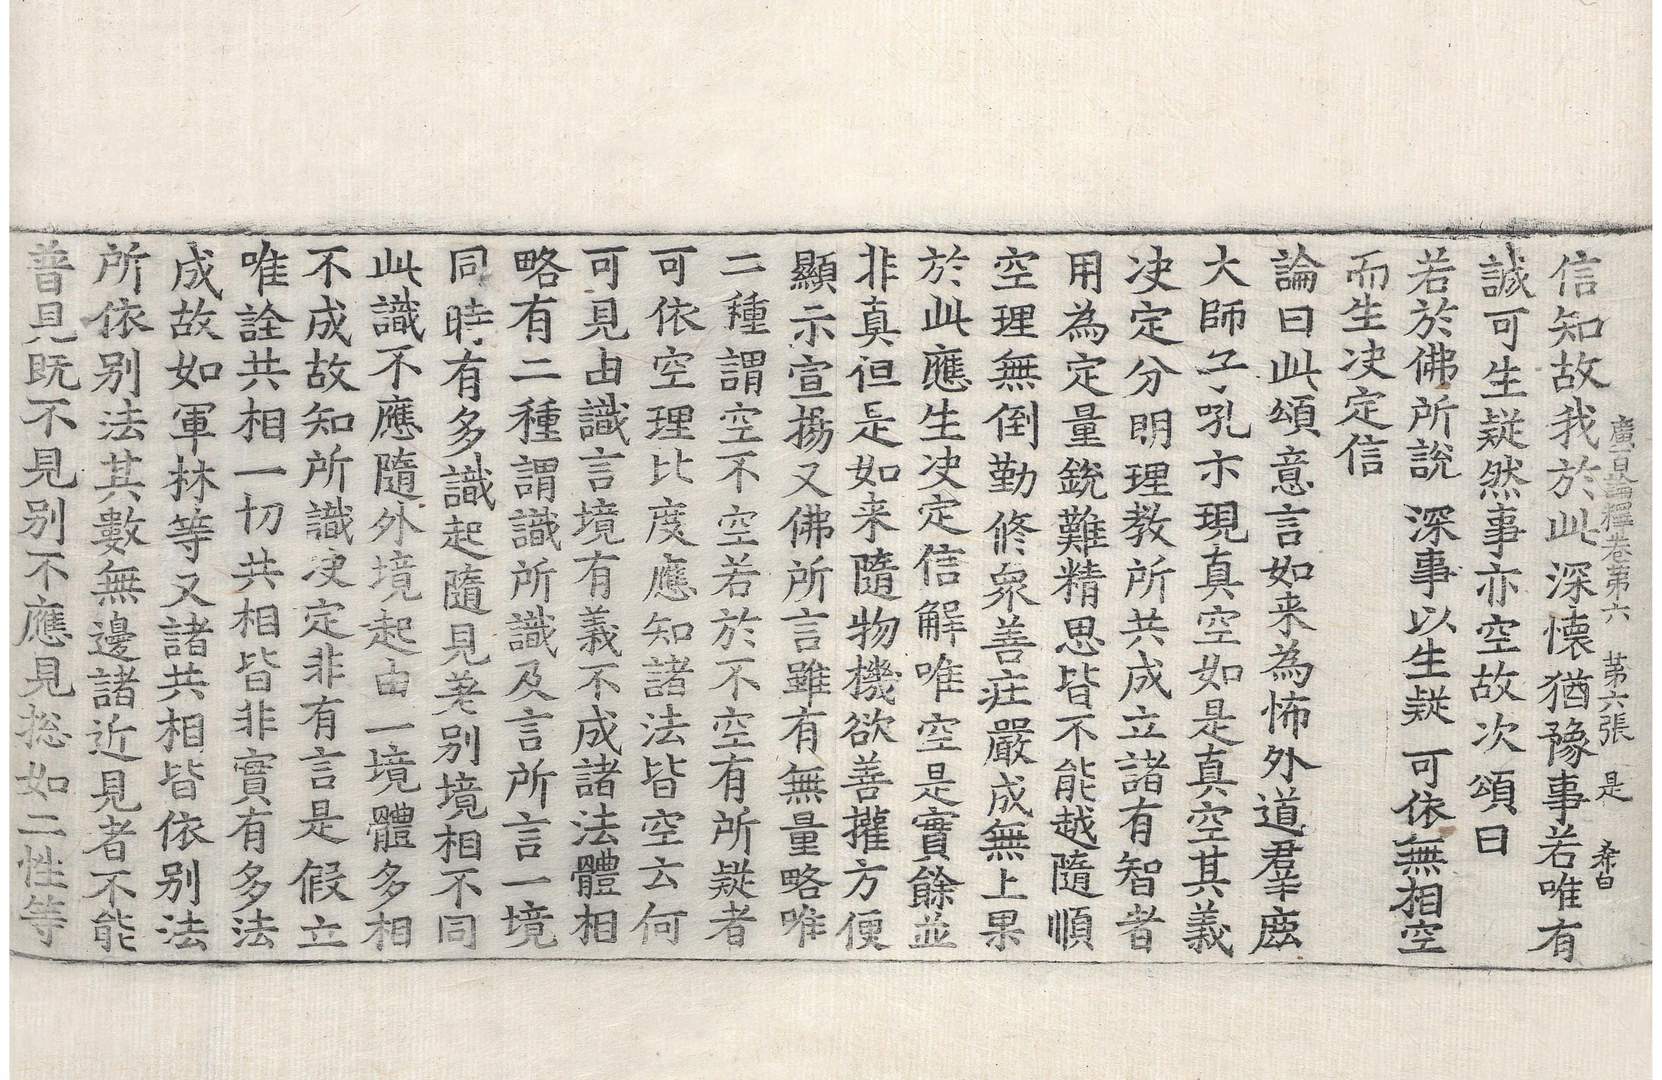 廣百論釋卷第六　第六張　是
信知故我於此深懷猶豫事若唯有
誠可生疑然事亦空故次頌曰
若於佛所說　深事以生疑　可依無相空
而生决定信
論曰此頌意言如来為怖外道羣麁
大師子吼示現真空如是真空其義
决定分明理教所共成立諸有智者
用為定量銳難精思皆不能越隨順
空理無倒勤修衆善庄嚴成無上果
於此應生决定信解唯空是實餘並
非真但是如来隨物機欲善權方便
顯示宣揚又佛所言雖有無量略唯
二種謂空不空若於不空有所疑者
可依空理比度應知諸法皆空云何
可見由識言境有義不成諸法體相
略有二種謂識所識及言所言一境
同時有多識起隨見差別境相不同
此識不應隨外境起由一境體多相
不成故知所識决定非有言是假立
唯詮共相一切共相皆非實有多法
成故如軍林等又諸共相皆依別法
所依別法其數無邊諸近見者不能
普見既不見別不應見揔如二性等